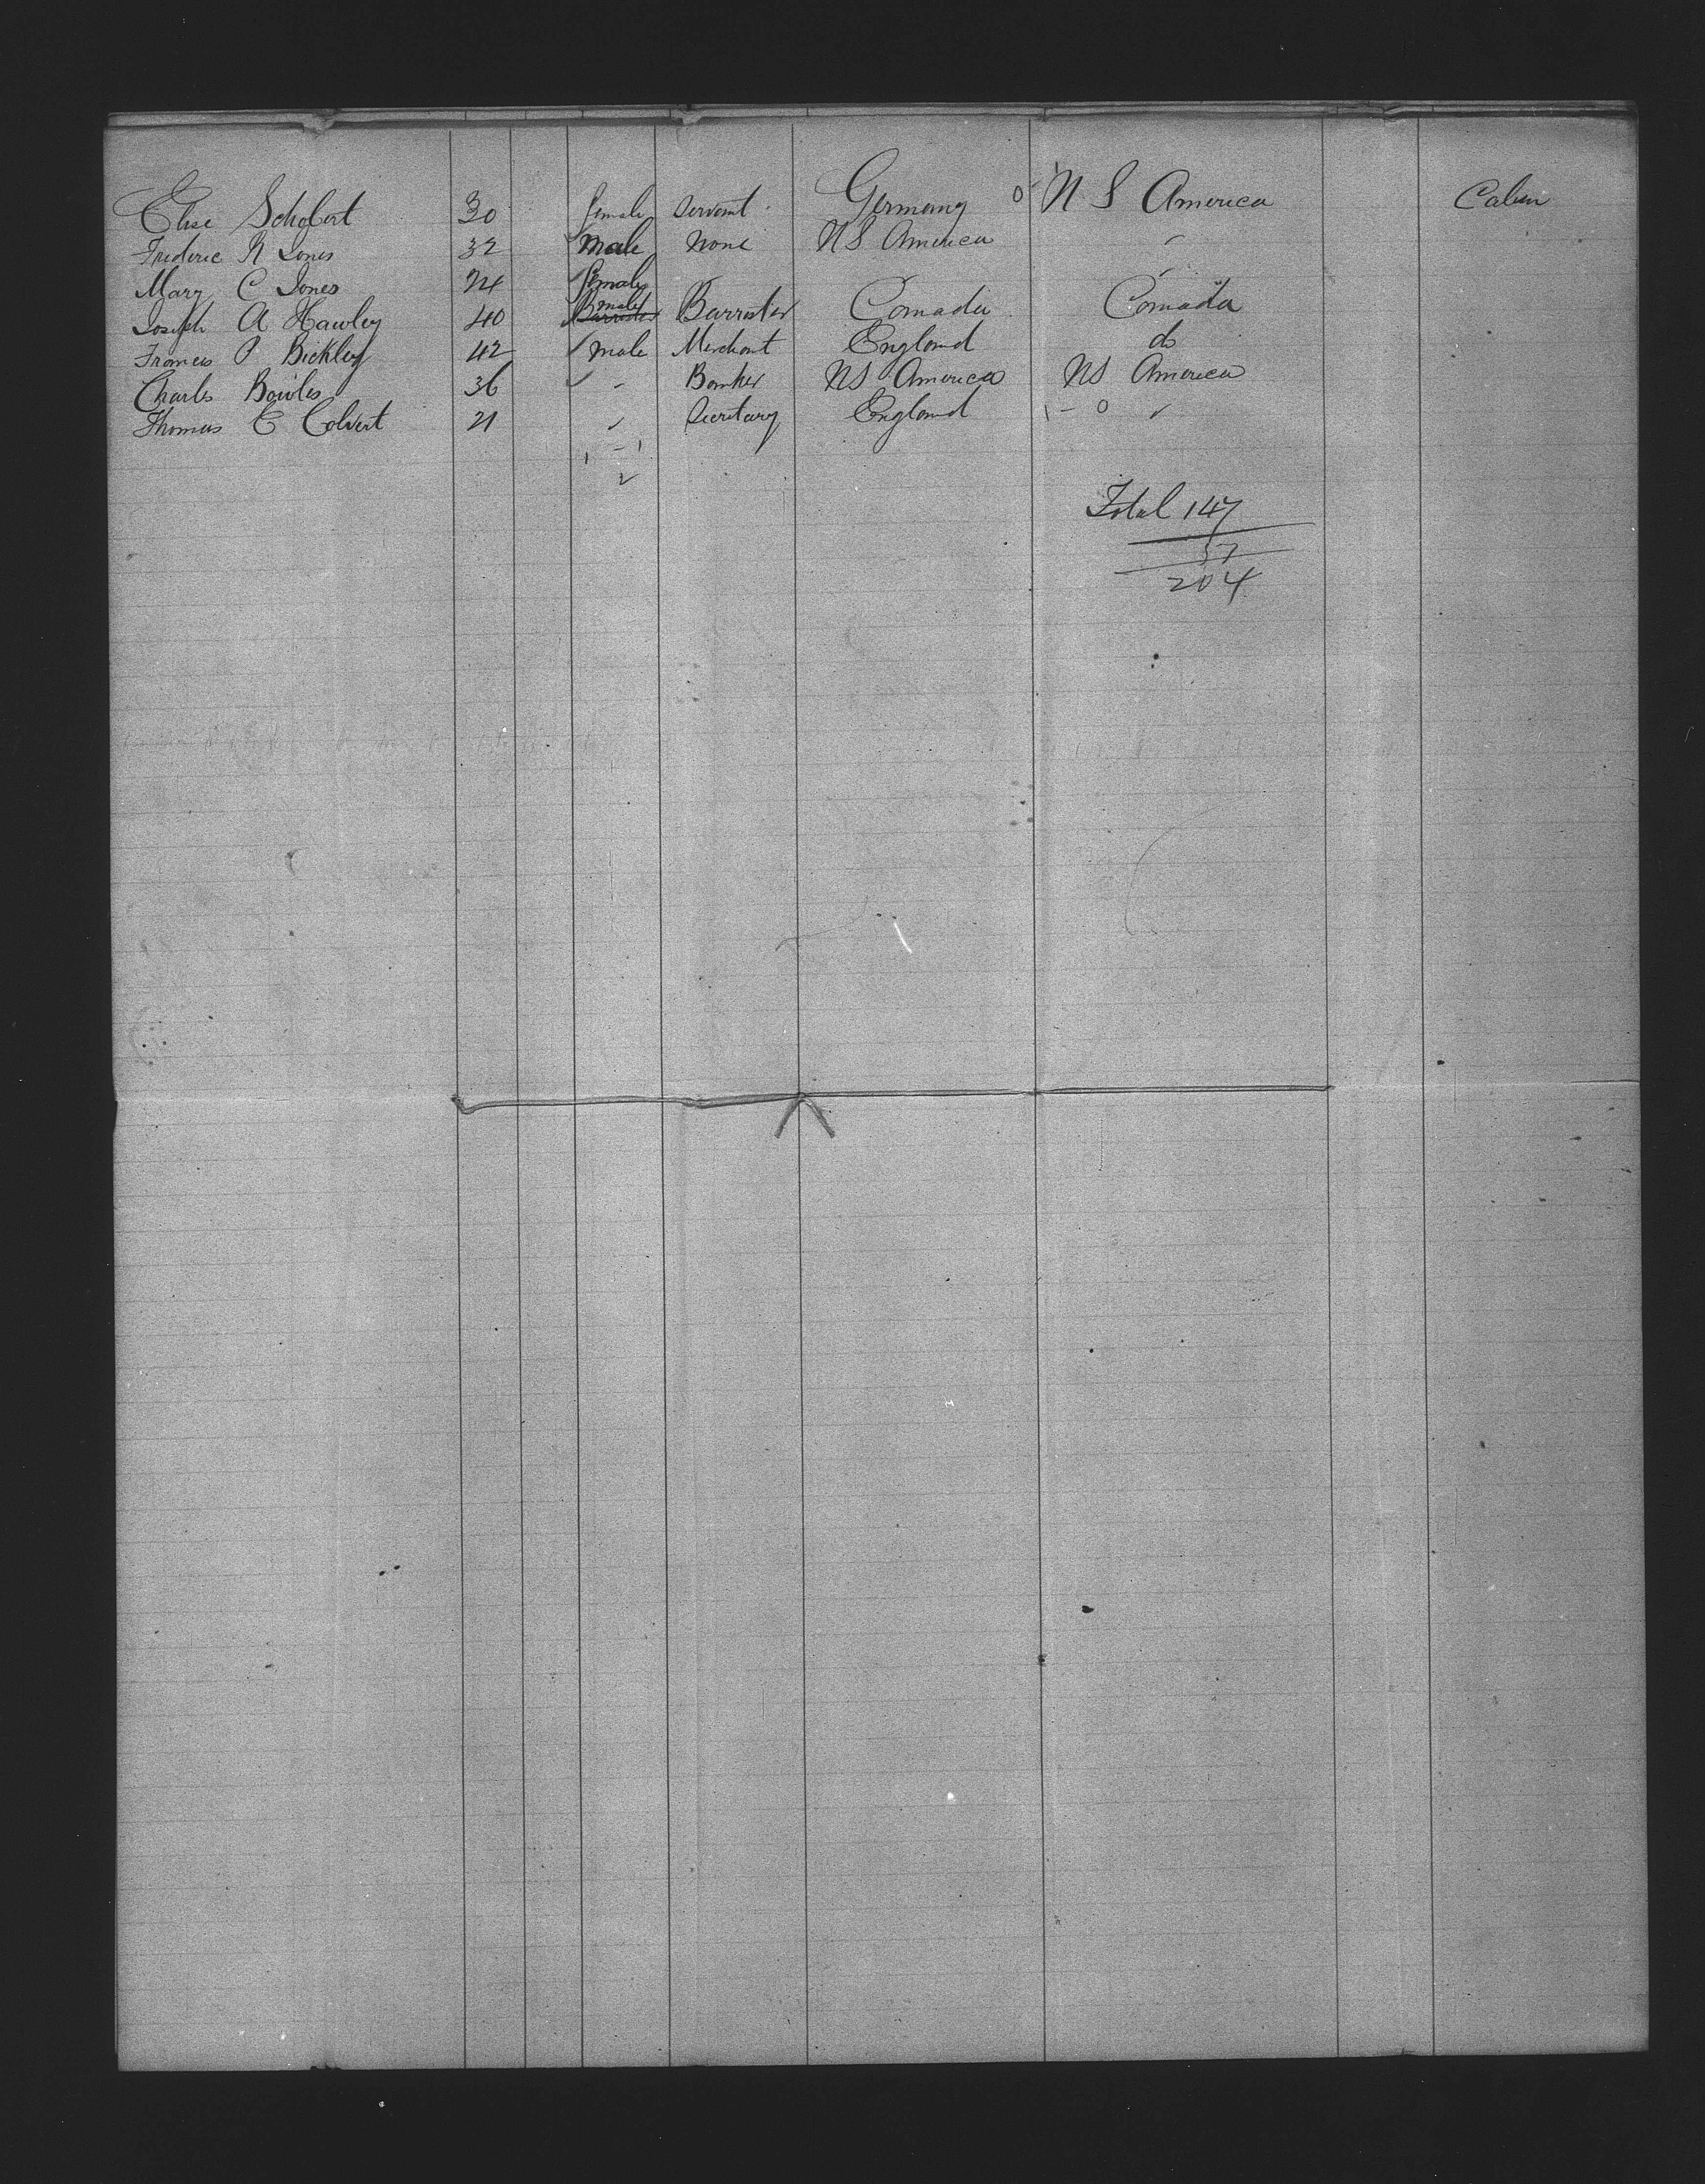 Elise Schobert 30 female Servant Germany 0 N S America Cabin
Frederic R Jones 32 male None N S America "
Mary C Jones 24 female "
Joseph A Hawley 40 male Barrister Barrister Canada Canada
Francis P Bickley 42 male Merchant England do
Charles Bowles 36 " Banker N S America N S America
Thomas C Colvert 21 " Secretary England - 0 "
1 - 1
2
Total 147
57
204